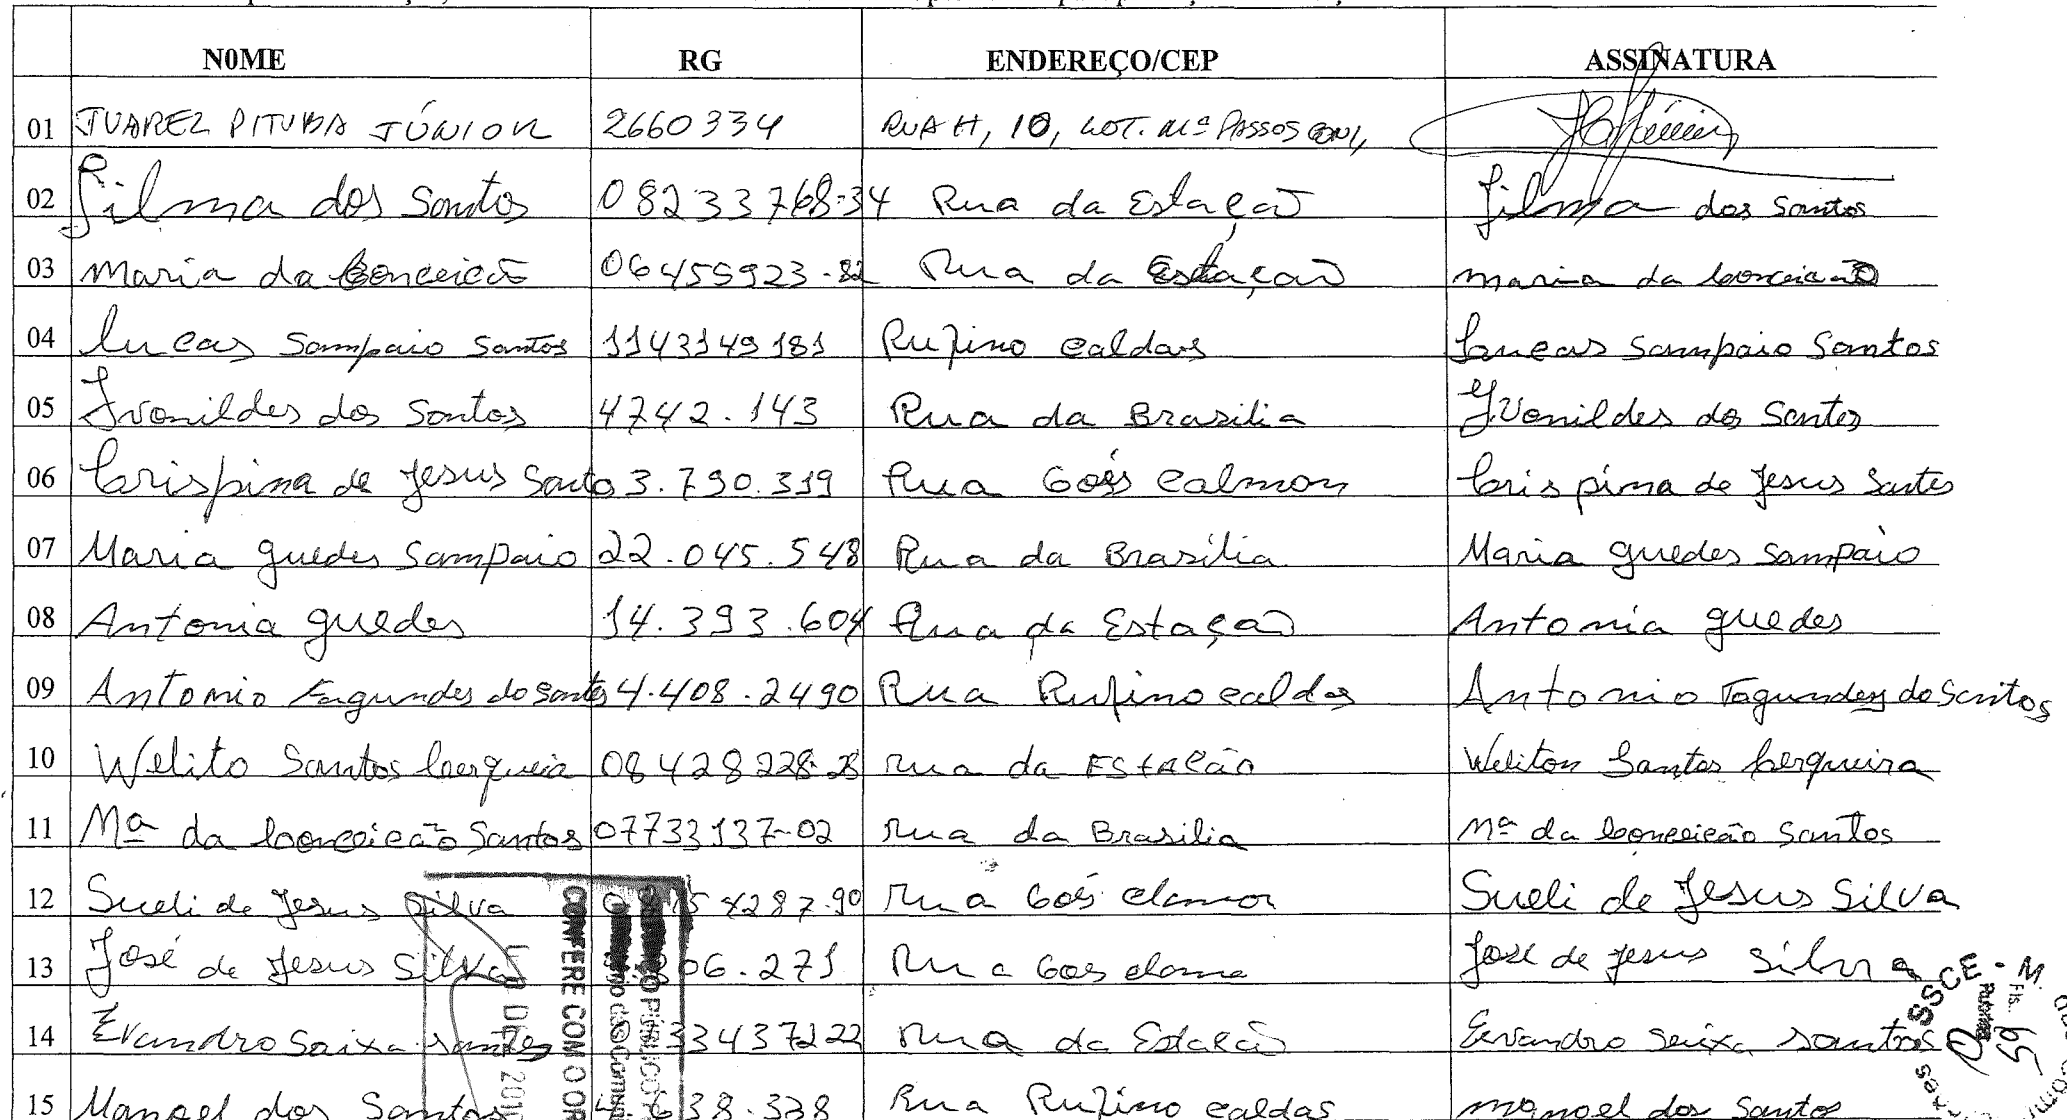 NOME RG ENDEREÇO/CEP ASSINATURA
01 JUAREZ PITUBA JÚNIOR 2660334 RUA H, 10, LOT. Mª PASSOS
02 Jilma dos Santos 08233768-34 Rua da Estação Jilma dos Santos
03 Maria da Conceicão 06455923-82 Rua da Estação maria da Conceicão
04 Lucas Sampaio Santos 1143149181 Rufino Caldas Lucas Sampaio Santos
05 Ivonildes dos Santos 4742.143 Rua da Brasilia Ivonildes dos Santos
06 Crispina de Jesus Santo 3.790.319 Rua Goés Calmon Crispina de Jesus Santos
07 Maria guedes Sampaio 22.045.548 Rua da Brasília Maria guedes Sampaio
08 Antonia guedes 14.393.604 Rua da Estação Antonia guedes
09 Antonio Fagundes do Santos 4.408.2490 Rua Rufino caldas Antonio Fagundes do Santos
10 Welito Santos Cerqueira 08428228-28 rua da EStAção Weliton Santos Cerqueira
11 Mª da Conceicão Santos 07733137-02 rua da Brasilia Mª da Conceicão Santos
12 Sueli de Jesus Silva 54287-90 rua Goés Sueli de Jesus Silva
13 José de Jesus Silva 06.271 Rua Goes José de jesus silva
14 Evandro Saixa santos 33437222 rua da Estação Evandro seixa santos
15 Manoel dos Santos 38.328 Rua Rufino caldas manoel dos Santos
CONFERE COM O OR
2010
SSCE - M.
Fls.
59
Rubrica